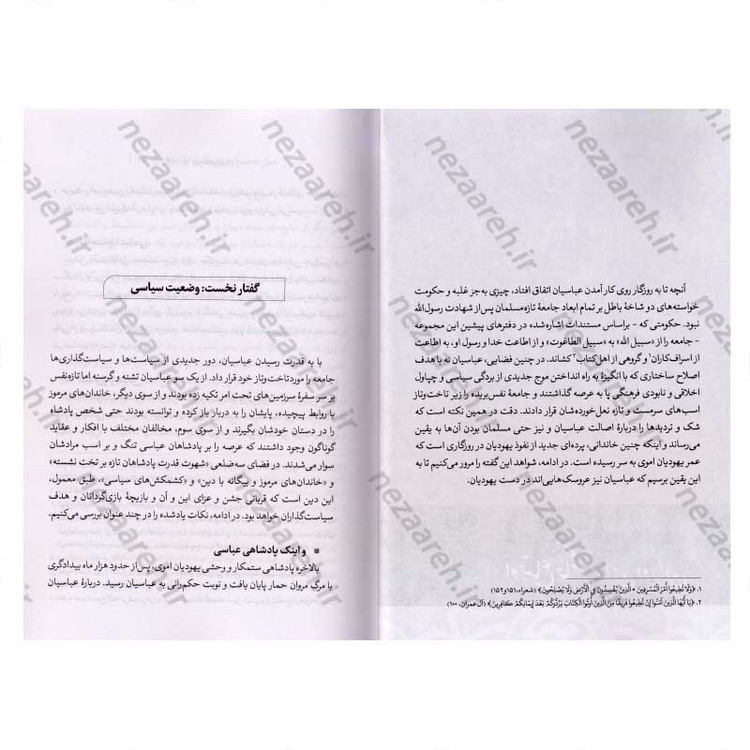 آنچه تا به روزگار روی کار آمدن عباسیان اتفاق افتاد، چیزی به‌جز غلبه و حکومت
خواسته‌های دو شاخهٔ باطل بر تمام ابعاد جامعهٔ تازه‌مسلمان پس از شهادت رسول‌الله
نبود. حکومتی که - براساس مستندات اشاره‌شده در دفترهای پیشین این مجموعه
- جامعه را از «سبیل الله» به «سبیل الطاغوت» و از اطاعت خدا و رسول او، به اطاعت
از اسراف‌کاران۱ و گروهی از اهل‌کتاب۲ کشاند. در چنین فضایی، عباسیان نه با هدف
اصلاح ساختاری که با انگیزهٔ به راه انداختن موج جدیدی از بردگی سیاسی و چپاول
اخلاقی و نابودی فرهنگی پا به عرصه گذاشتند و جامعهٔ نفس‌بریده را زیر تاخت‌وتاز
اسب‌های سرمست و تازه نعل‌خورده‌شان قرار دادند. دقت در همین نکته است که
شک و تردیدها را دربارهٔ اصالت عباسیان و نیز حتی مسلمان بودن آن‌ها به یقین
می‌رساند و اینکه چنین خاندانی، پرده‌ای جدید از نفوذ یهودیان در روزگاری است که
عمر یهودیان اموی به سر رسیده است. در ادامه، شواهد این گفته را مرور می‌کنیم تا به
این یقین برسیم که عباسیان نیز عروسک‌هایی‌اند در دست یهودیان.
۱. ﴿وَلَا تُطِيعُوا أَمْرَ الْمُسْرِفِينَ * الَّذِينَ يُفْسِدُونَ فِي الْأَرْضِ وَلَا يُصْلِحُونَ﴾ (شعراء، ۱۵۱ و ۱۵۲)
۲. ﴿يَا أَيُّهَا الَّذِينَ آمَنُوا إِنْ تُطِيعُوا فَرِيقًا مِنَ الَّذِينَ أُوتُوا الْكِتَابَ يَرُدُّوكُمْ بَعْدَ إِيمَانِكُمْ كَافِرِينَ﴾ (آل عمران، ۱۰۰)
گفتار نخست: وضعیت سیاسی
با به قدرت رسیدن عباسیان، دور جدیدی از سیاست‌ها و سیاست‌گذاری‌ها
جامعه را مورد تاخت‌وتاز خود قرار داد. از یک سو عباسیان تشنه و گرسنه اما تازه‌نفس
بر سر سفرهٔ سرزمین‌های تحت امر تکیه زده بودند و از سوی دیگر، خاندان‌های مرموز
با روابط پیچیده، پایشان را به دربار باز کرده و توانسته بودند حتی شخص پادشاه
را در دستان خودشان بگیرند و از سوی سوم، مخالفان مختلف با افکار و عقاید
گوناگون وجود داشتند که عرصه را بر پادشاهان عباسی تنگ و بر اسب مرادشان
سوار می‌شدند. در فضای سه‌ضلعی «شهوت قدرت پادشاهان تازه بر تخت نشسته»
و «خاندان‌های مرموز و بیگانه با دین» و «کشمکش‌های سیاسی»، طبق معمول،
این دین است که قربانی جشن و عزای این و آن و بازیچهٔ بازی‌گردانان و هدف
سیاست‌گذاران خواهد بود. در ادامه، نکات یادشده را در چند عنوان بررسی می‌کنیم.
▪ و اینک پادشاهی عباسی
بالاخره پادشاهی ستمکار و وحشی یهودیان اموی، پس از حدود هزار ماه بیدادگری
با مرگ مروان حمار پایان یافت و نوبت حکم‌رانی به عباسیان رسید. دربارهٔ عباسیان
nezaareh.ir
nezaareh.ir
nezaareh.ir
nezaareh.ir
nezaareh.ir
nezaareh.ir
nezaareh.ir
nezaareh.ir
nezaareh.ir
nezaareh.ir
nezaareh.ir
nezaareh.ir